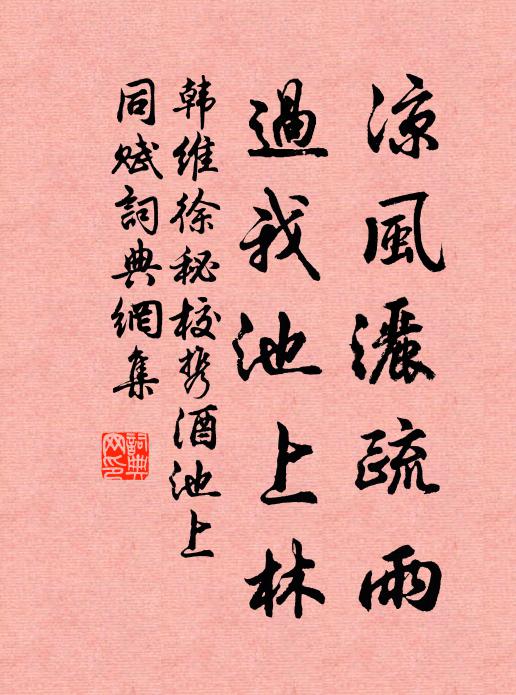 涼風灑疏雨
過我池上林
韩維徐秘校携酒池上
同赋詞典網集
詞典
网印